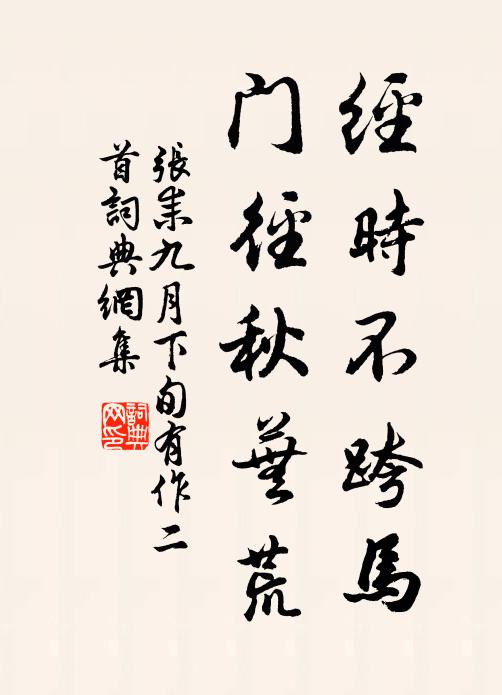 經時不跨馬
门徑秋蕪荒
張耒九月下旬有作二
首詞典網集
詞典
网印